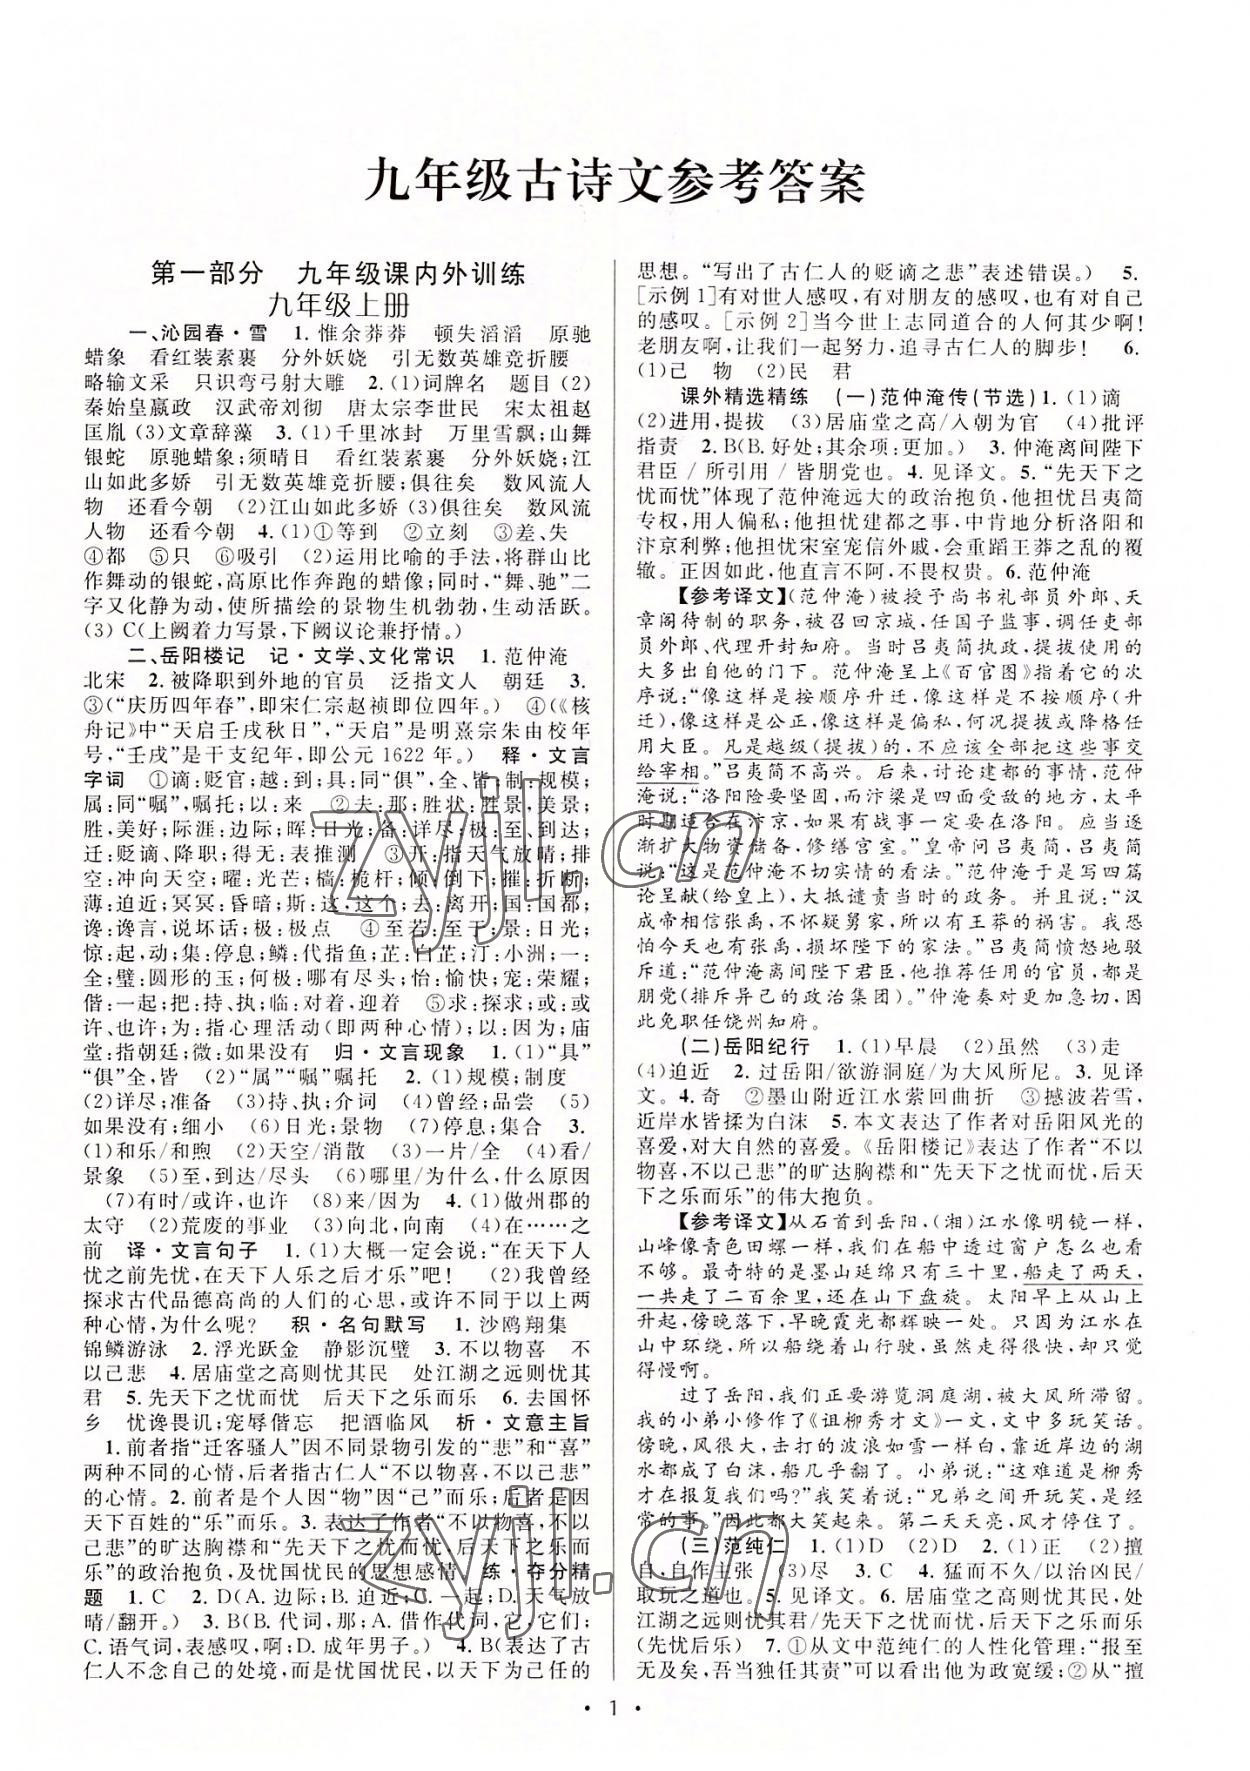 九年级古诗文参考答案
第一部分　九年级课内外训练
九年级上册
一、沁园春·雪　1. 惟余莽莽　顿失滔滔　原驰
蜡象　看红装素裹　分外妖娆　引无数英雄竞折腰
略输文采　只识弯弓射大雕　2.(1)词牌名　题目 (2)
秦始皇嬴政　汉武帝刘彻　唐太宗李世民　宋太祖赵
匡胤 (3)文章辞藻　3.(1)千里冰封　万里雪飘;山舞
银蛇　原驰蜡象;须晴日　看红装素裹　分外妖娆;江
山如此多娇　引无数英雄竞折腰;俱往矣　数风流人
物　还看今朝　(2)江山如此多娇　(3)俱往矣　数风流
人物　还看今朝　4.(1)①等到　②立刻　③差、失
④都　⑤只　⑥吸引　(2)运用比喻的手法,将群山比
作舞动的银蛇,高原比作奔跑的蜡像;同时,“舞、驰”二
字又化静为动,使所描绘的景物生机勃勃,生动活跃。
(3) C(上阙着力写景,下阙议论兼抒情。)
二、岳阳楼记　记·文学、文化常识　1. 范仲淹
北宋　2. 被降职到外地的官员　泛指文人　朝廷　3.
③(“庆历四年春”,即宋仁宗赵祯即位四年。)　④(《核
舟记》中“天启壬戌秋日”,“天启”是明熹宗朱由校年
号,“壬戌”是干支纪年,即公元 1622 年。)　释·文言
字词　①谪:贬官;越:到;具:同“俱”,全、皆;制:规模;
属:同“嘱”,嘱托;以:来　②夫:那;胜状:胜景,美景;
胜,美好;际涯:边际;晖:日光;备:详尽;极:至、到达;
迁:贬谪、降职;得无:表推测　③开:指天气放晴;排
空:冲向天空;曜:光芒;樯:桅杆;倾:倒下;摧:折断;
薄:迫近;冥冥:昏暗;斯:这,这个;去:离开;国:国都;
谗:谗言,说坏话;极:极点　④至若:至于;景:日光;
惊:起,动;集:停息;鳞:代指鱼;芷:白芷;汀:小洲;一:
全;璧:圆形的玉;何极:哪有尽头;怡:愉快;宠:荣耀;
偕:一起;把:持、执;临:对着,迎着　⑤求:探求;或:或
许、也许;为:指心理活动(即两种心情);以:因为;庙
堂:指朝廷;微:如果没有　归·文言现象　1.(1)“具”
“俱”全,皆　(2)“属”“嘱”嘱托　2.(1)规模;制度
(2)详尽;准备　(3)持、执;介词　(4)曾经;品尝　(5)
如果没有;细小　(6)日光;景物　(7)停息;集合　3.
(1)柔和/和煦　(2)天空/消散　(3)一片/全　(4)看/
景象　(5)至,到达/尽头　(6)哪里/为什么,什么原因
(7)有时/或许,也许　(8)来/因为　4.(1)做州郡的
太守　(2)荒废的事业　(3)向北,向南　(4)在……之
前　译·文言句子　1.(1)大概一定会说:“在天下人
忧之前先忧,在天下人乐之后才乐”吧!　(2)我曾经
探求古代品德高尚的人们的心思,或许不同于以上两
种心情,为什么呢?　积·名句默写　1. 沙鸥翔集
锦鳞游泳　2. 浮光跃金　静影沉璧　3. 不以物喜　不
以己悲　4. 居庙堂之高则忧其民　处江湖之远则忧其
君　5. 先天下之忧而忧　后天下之乐而乐　6. 去国怀
乡　忧谗畏讥;宠辱偕忘　把酒临风　析·文意主旨
1. 前者指“迁客骚人”因不同景物引发的“悲”和“喜”
两种不同的心情,后者指古仁人“不以物喜,不以己悲”
的心情。2. 前者是个人因“物”因“己”而乐;后者是因
天下百姓的“乐”而乐。3. 表达了作者“不以物喜,不以
己悲”的旷达胸襟和“先天下之忧而忧,后天下之乐而
乐”的政治抱负,及忧国忧民的思想感情　练·夺分精
题　1. C　2. D(A. 边际;B. 迫近;C. 一起;D. 天气放
晴/翻开。)　3. B(B. 代词,那;A. 借作代词,它,它们;
C. 语气词,表感叹,啊;D. 成年男子。)　4. B(表达了古
仁人不念自己的处境,而是忧国忧民,以天下为己任的
思想。“写出了古仁人的贬谪之悲”表述错误。)　5.
[示例 1]有对世人感叹,有对朋友的感叹,也有对自己
的感叹。[示例 2]当今世上志同道合的人何其少啊!
老朋友啊,让我们一起努力,追寻古仁人的脚步!　6.
(1)己　物　(2)民　君
课外精选精练　(一)范仲淹传(节选)　1.(1)谪
(2)进用,提拔　(3)居庙堂之高/入朝为官　(4)批评
指责　2. B(B. 好处;其余项:更加。)　3. 仲淹离间陛下
君臣 / 所引用 / 皆朋党也。4. 见译文。5. “先天下之
忧而忧”体现了范仲淹远大的政治抱负,他担忧吕夷简
专权,用人偏私;他担忧建都之事,中肯地分析洛阳和
汴京利弊;他担忧宋室宠信外戚,会重蹈王莽之乱的覆
辙。正因如此,他直言不阿,不畏权贵。6. 范仲淹
【参考译文】(范仲淹)被授予尚书礼部员外郎、天
章阁待制的职务,被召回京城,任国子监事,调任吏部
员外郎、代理开封知府。当时吕夷简执政,提拔使用的
大多出自他的门下。范仲淹呈上《百官图》指着它的次
序说:“像这样是按顺序升迁,像这样是不按顺序(升
迁),像这样是公正,像这样是偏私,何况提拔或降格任
用大臣。凡是越级(提拔)的,不应该全部把这些事交
给宰相。”吕夷简不高兴。后来,讨论建都的事情,范仲
淹说:“洛阳险要坚固,而汴梁是四面受敌的地方,太平
时期适合在汴京,如果有战事一定要在洛阳。应当逐
渐扩大物资储备,修缮宫室。”皇帝问吕夷简,吕夷简
说:“这是范仲淹不切实情的看法。”范仲淹于是写四篇
论呈献(给皇上),大抵谴责当时的政务。并且说:“汉
成帝相信张禹,不怀疑舅家,所以有王莽的祸害。我恐
怕今天也有张禹,损坏陛下的家法。”吕夷简愤怒地驳
斥道:“范仲淹离间陛下君臣,他推荐任用的官员,都是
朋党(排斥异己的政治集团)。”仲淹奏对更加急切,因
此免职任饶州知府。
(二)岳阳纪行　1.(1)早晨　(2)虽然　(3)走
(4)迫近　2. 过岳阳/欲游洞庭/为大风所尼。3. 见译
文。4. 奇　②墨山附近江水萦回曲折　③撼波若雪,
近岸水皆揉为白沫　5. 本文表达了作者对岳阳风光的
喜爱,对大自然的喜爱。《岳阳楼记》表达了作者“不以
物喜,不以己悲”的旷达胸襟和“先天下之忧而忧,后天
下之乐而乐”的伟大抱负。
【参考译文】从石首到岳阳,(湘)江水像明镜一样,
山峰像青色田螺一样,我们在船中透过窗户怎么也看
不够。最奇特的是墨山延绵只有三十里,船走了两天,
一共走了二百余里,还在山下盘旋。太阳早上从山上
升起,傍晚落下,早晚霞光都辉映一处。只因为江水在
山中环绕,所以船绕着山行驶,虽然走得很快,却只觉
得慢啊。
过了岳阳,我们正要游览洞庭湖,被大风所滞留。
我的小弟小修作了《诅柳秀才文》一文,文中多玩笑话。
傍晚,风很大,卷打的波浪如雪一样白,靠近岸边的湖
水都成了白沫,船几乎翻了。小弟说:“这难道是柳秀
才在报复我们吗?”我笑着说:“兄弟之间开玩笑,是经
常的事。”因此都大笑起来。第二天天亮,风才停住了。
(三)范纯仁　1.(1)D　(2)D　2.(1)正　(2)擅
自,自作主张　(3)尽　3. C　4. 猛而不久/以治凶民/
取玩之道也。5. 见译文。6. 居庙堂之高则忧其民/处
江湖之远则忧其君/先天下之忧而忧/后天下之乐而乐
(先忧后乐)　7. ①从文中范纯仁的人性化管理:“报至
无及矣,吾当独任其责”可以看出他为政宽缓;②从“擅
· 1 ·
zyjl.cn
zyjl.cn